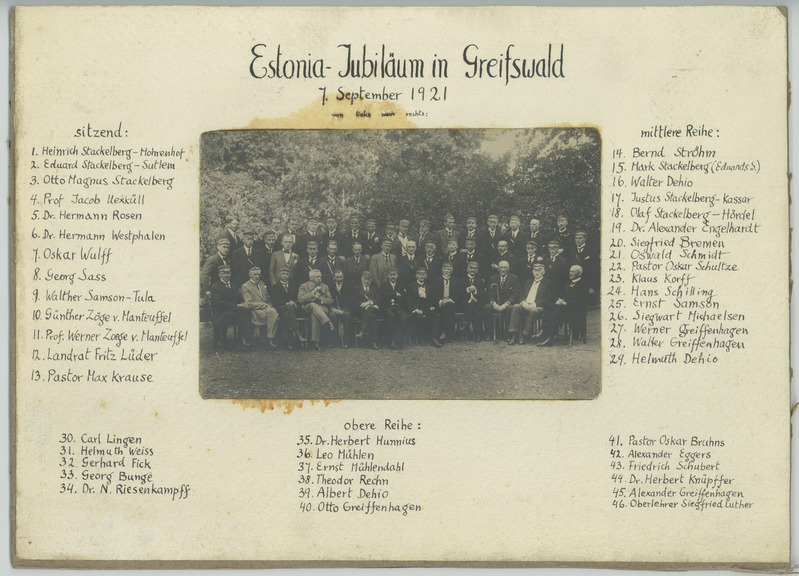 Estonia-Jubiläum in Greifswald
7. September 1921
von links nach rechts:
sitzend:
1. Heinrich Stackelberg-Mohrenhof
2. Eduard Stackelberg-Sutlem
3. Otto Magnus Stackelberg
4. Prof Jacob Uexküll
5. Dr. Hermann Rosen
6. Dr. Hermann Westphalen
7. Oskar Wulff
8. Georg Sass
9. Walther Samson-Tula
10. Günther Zöge v. Manteuffel
11. Prof. Werner Zoege v. Manteuffel
12. Landrat Fritz Lüder
13. Pastor Max Krause
mittlere Reihe:
14. Bernd Ströhm
15. Mark Stackelberg (Eduards S.)
16. Walter Dehio
17. Justus Stackelberg-Kassar
18. Olaf Stackelberg-Hördel
19. Dr. Alexander Engelhardt
20. Siegfried Bremen
21. Oswald Schmidt
22. Pastor Oskar Schultze
23. Klaus Korff
24. Hans Schilling
25. Ernst Samson
26. Siegwart Michaelsen
27. Werner Greiffenhagen
28. Walter Greiffenhagen
29. Helmuth Dehio
obere Reihe:
30. Carl Lingen
31. Helmuth Weiss
32. Gerhard Fick
33. Georg Bunge
34. Dr. N. Riesenkampff
35. Dr. Herbert Hunnius
36. Leo Mühlen
37. Ernst Mühlendahl
38. Theodor Rechn
39. Albert Dehio
40. Otto Greiffenhagen
41. Pastor Oskar Bruhns
42. Alexander Eggers
43. Friedrich Schubert
44. Dr. Herbert Knüpffer
45. Alexander Greiffenhagen
46. Oberlehrer Siegfried Luther